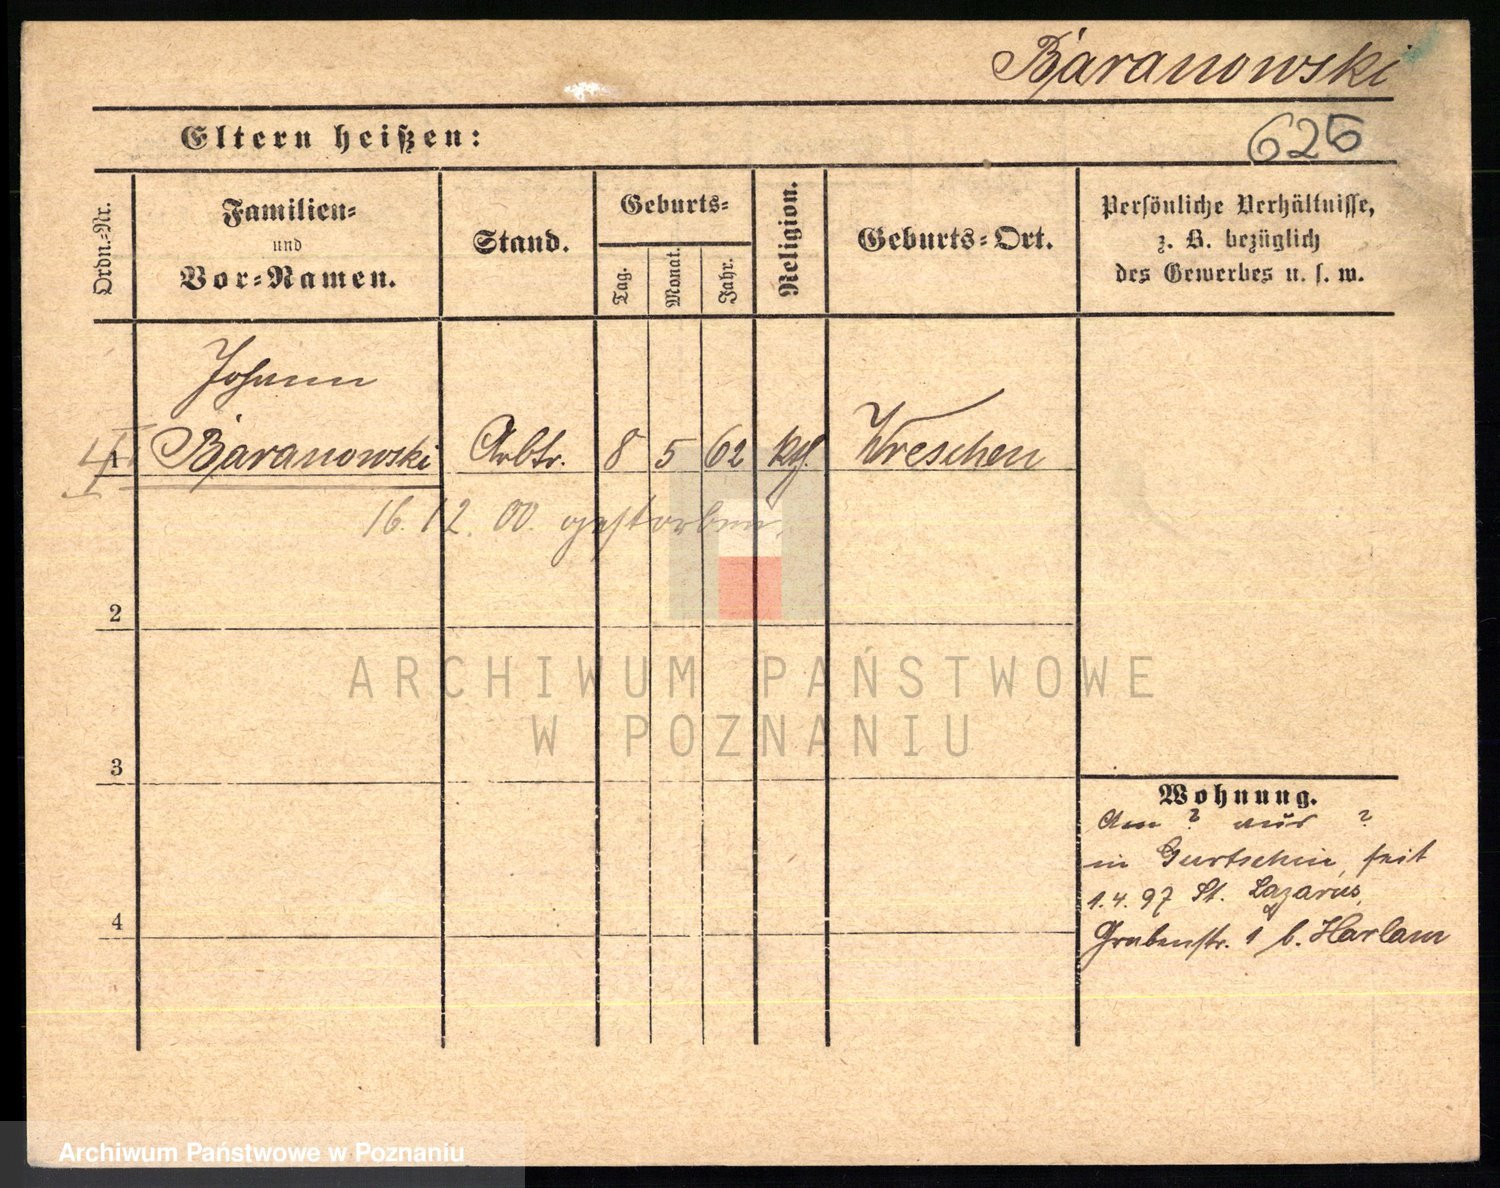 Baranowski
Eltern heißen:
625
Ordn.-Nr.
Familien-
und
Vor-Namen.
Stand.
Geburts-
Tag.
Monat.
Jahr.
Religion.
Geburts-Ort.
Persönliche Verhältnisse,
z. B. bezüglich
des Gewerbes u. s. w.
Johann
1 Baranowski Arbtr. 8 5 62 kth. Wreschen
16. 12. 00. gestorben.
2
ARCHIWUM PAŃSTWOWE
W POZNANIU
3
Wohnung.
Am ? aus ?
in Gurtschin, seit
1.4.97 St. Lazarus,
4
Grabenstr. 1 b. Harlam
Archiwum Państwowe w Poznaniu